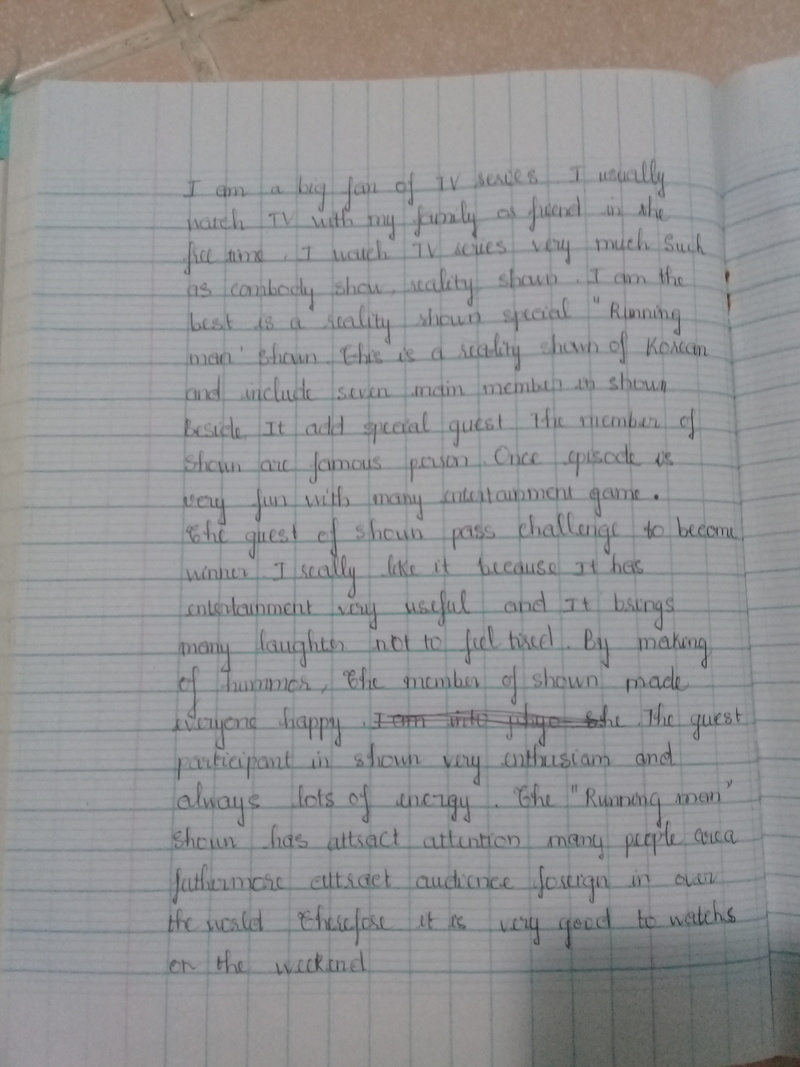 I am a big fan of TV series. I usually
watch TV with my family or friend in the
free time. I watch TV series very much Such
as combody show, reality shown. I am the
best is a reality shown special "Running
man" shown. This is a reality shown of Korean
and include seven main member in shown
Beside, It add special guest The member of
shown are famous person. Once episode is
very fun with many entertainment game.
The guest of shown pass challenge to become
winner. I really like it because It has
entertainment very useful and It brings
many laughter not to feel tired. By making
of hummor, The member of shown made
everyone happy. The guest
participant in shown very enthusiam and
always lots of energy. The "Running man"
shown has attract attention many people area
futhermore attract audience foreign in over
the world Therefore it is very good to watchs
on the weekend